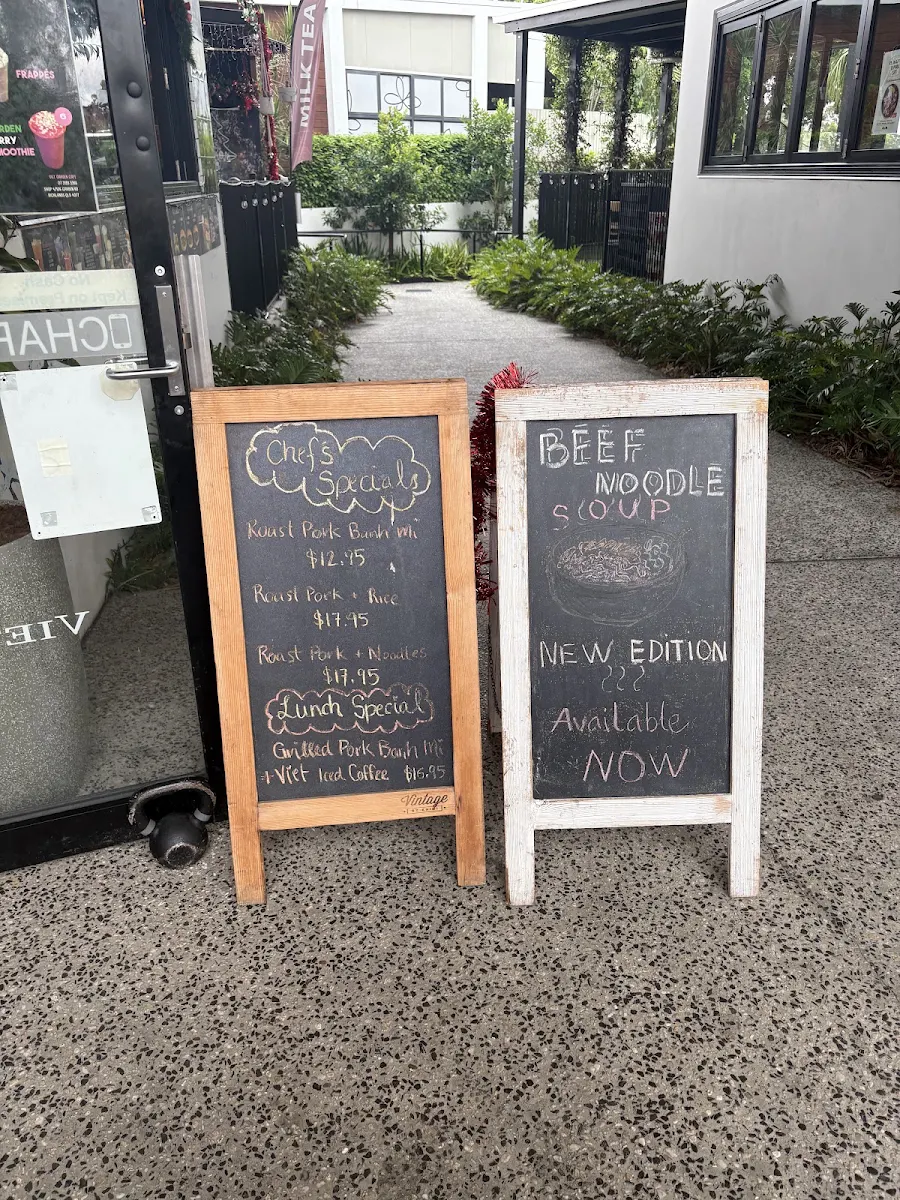 FRAPPÉS
MILK TEA
No Cash
Kept on Premises
CHAR
VIE
Chef's
Specials
Roast Pork Banh Mi
$12.95
Roast Pork + Rice
$17.95
Roast Pork + Noodles
$17.95
Lunch Special
Grilled Pork Banh Mi
+ Viet Iced Coffee $16.95
Vintage
BEEF
NOODLE
SOUP
NEW EDITION
Available
NOW